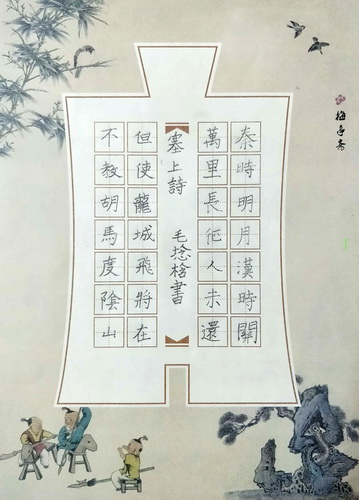 秦時明月漢時關
萬里長征人未還
塞上詩
毛楷書
但使龍城飛將在
不教胡馬度陰山